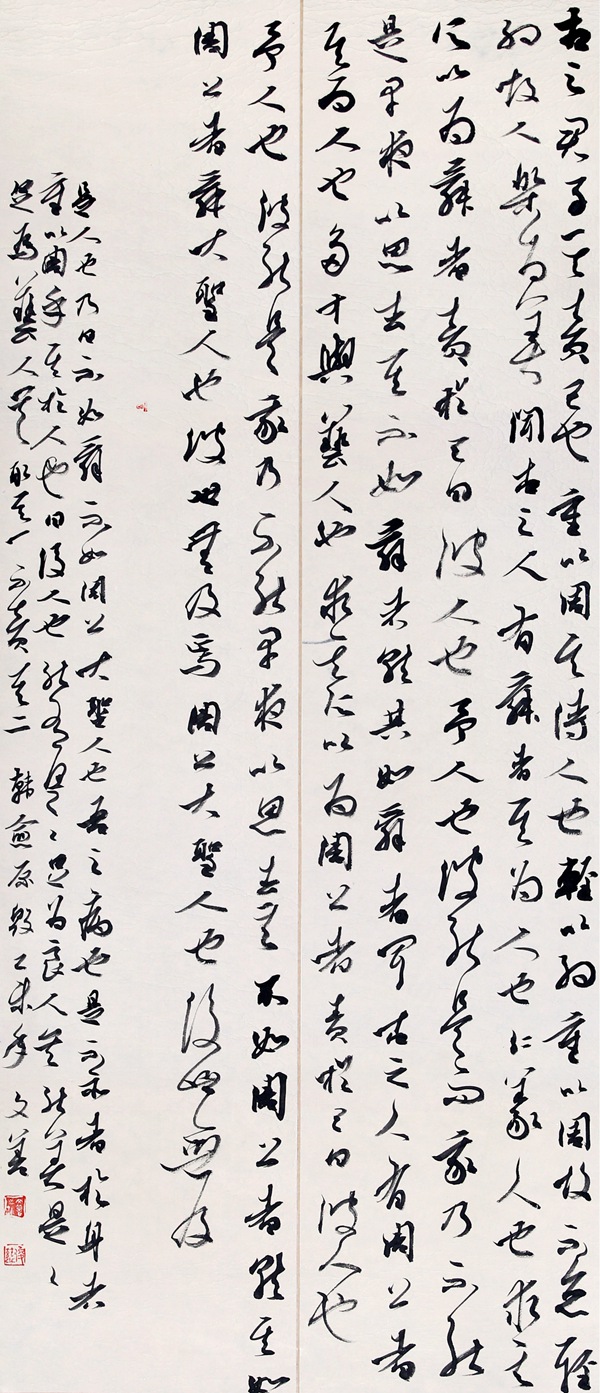 古之君子其責己也重以周其待人也輕以約重以周故不怠輕
約故人樂為善聞古之人有舜者其為人也仁義人也求其
所以為舜者責於己曰彼人也予人也彼能是而我乃不能
是早夜以思去其不如舜者就其如舜者聞古之人有周公者
其為人也多才與藝人也求其所以為周公者責於己曰彼人也
予人也彼能是我乃不能早夜以思去其不如周公者就其如
周公者舜大聖人也後世無及焉周公大聖人也後世無及
是人也乃曰不如舜不如周公大聖人也吾之病也是不亦責於身者
重以周乎其於人也曰彼人也能有是々足為良人矣能善是々
足為藝人矣取其一不責其二 韓愈原毀 乙未年 文善